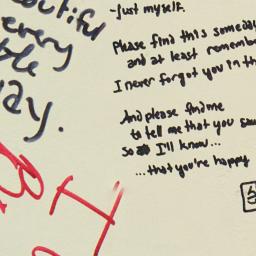 beautiful
every
able
way.
-just myself.
Please find this someday
and at least remember
I never forgot you in th
And please find me
to tell me that you saw
so I'll know...
...that you're happy
I